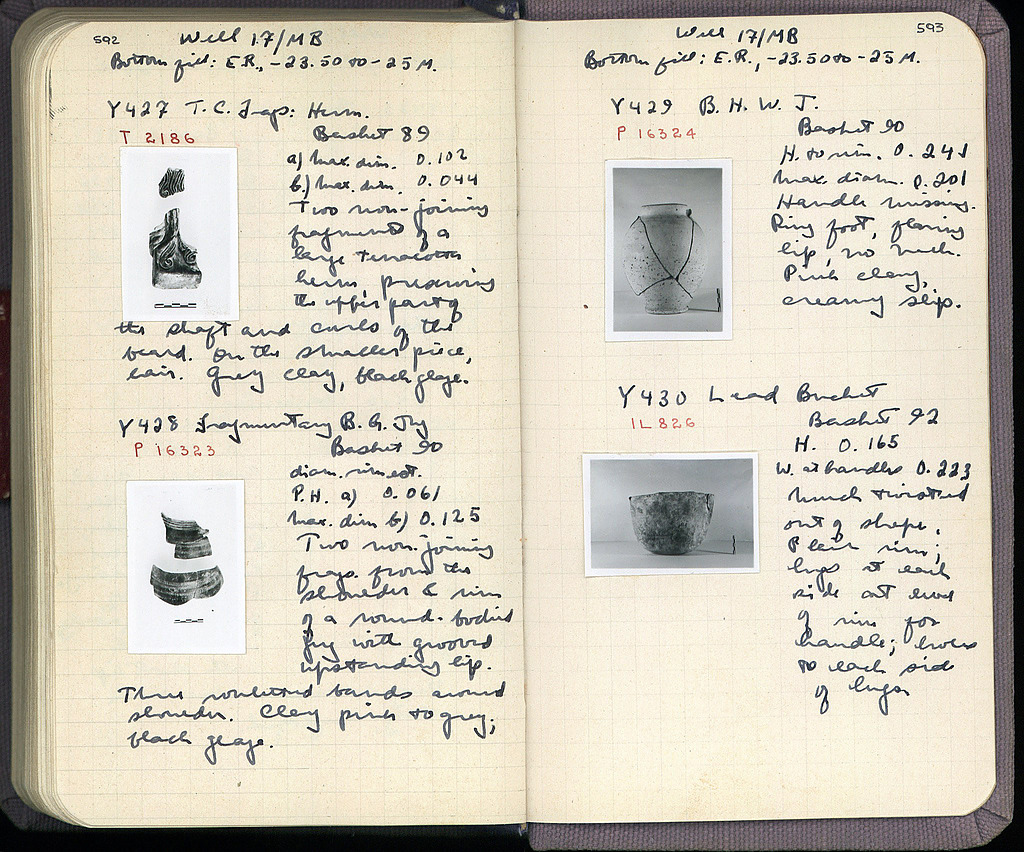 592
Well 17/MB
Bottom fill: E.R., -23.50 to -25 M.
Y427 T.C. Frags: Herm.
T 2186
Basket 89
a) Max. dim. 0.102
b) Max. dim. 0.044
Two non-joining
fragments of a
large terracotta
herm, preserving
the upper part of
the shaft and curls of the
beard. On the smaller piece,
hair. Grey clay, black glaze.
Y428 Fragmentary B.G. Jug
P 16323
Basket 90
diam. rim est.
P.H. a) 0.061
Max. dim b) 0.125
Two non-joining
frags. from the
shoulder & rim
of a round-bodied
jug with grooved
upstanding lip.
Three rouletted bands around
shoulder. Clay pink to grey;
black glaze.
593
Well 17/MB
Bottom fill: E.R., -23.50 to -25 M.
Y429 B.H.W.J.
P 16324
Basket 90
H. to rim. 0.241
Max. diam. 0.201
Handle missing.
Ring foot, flaring
lip, no neck.
Pink clay,
creamy slip.
Y430 Lead Bucket
IL 826
Basket 92
H. 0.165
W. at handles 0.223
Much twisted
out of shape.
Plain rim;
lugs at each
side out
of rim for
handle; holes
to each side
of lugs